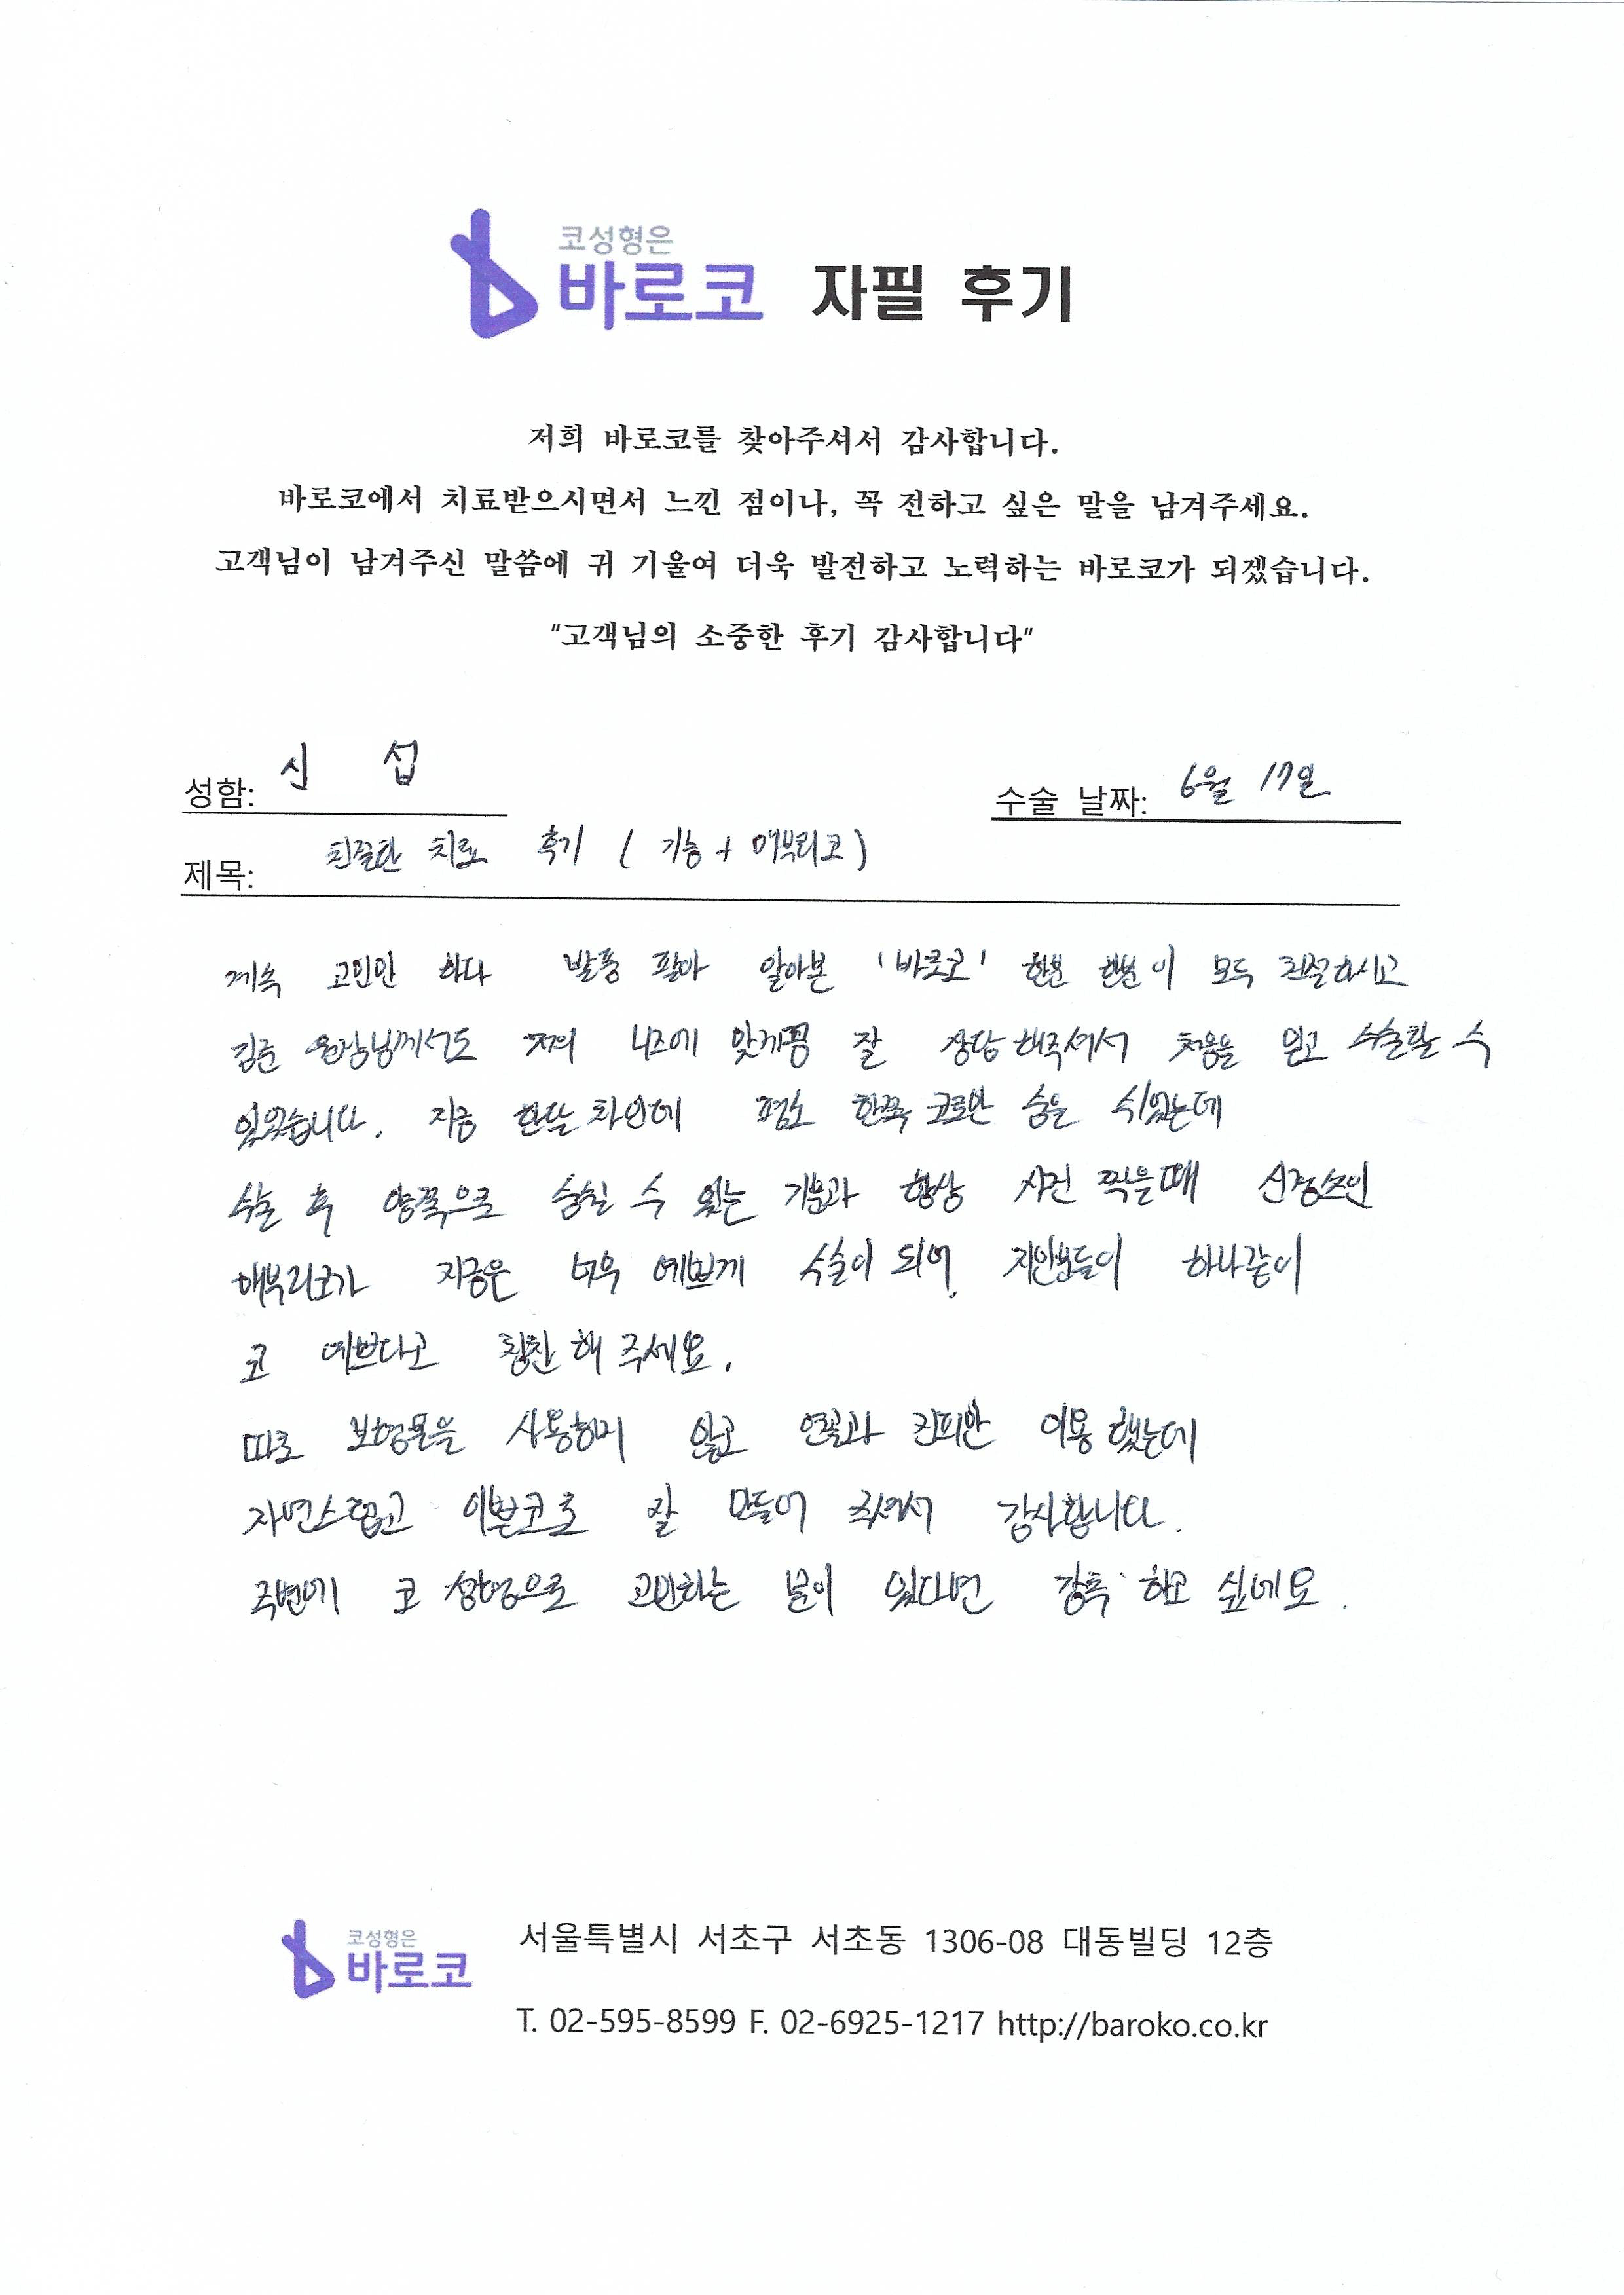 코성형은
바로코 자필 후기
저희 바로코를 찾아주셔서 감사합니다.
바로코에서 치료받으시면서 느낀 점이나, 꼭 전하고 싶은 말을 남겨주세요.
고객님이 남겨주신 말씀에 귀 기울여 더욱 발전하고 노력하는 바로코가 되겠습니다.
"고객님의 소중한 후기 감사합니다"
성함: 신 섭 수술 날짜: 6월 17일
제목: 친절한 치료 후기 ( 기능 + 매부리코 )
계속 고민만 하다 발품 팔아 알아본 '바로코' 한분 한분이 모두 친절하시고
김준 원장님께서도 저의 니즈에 맞게끔 잘 상담해주셔서 처음을 믿고 수술할 수
있었습니다. 지금 한달 차인데 평소 한쪽 코로만 숨을 쉬었는데
수술 후 양쪽으로 숨쉴 수 있는 기분과 항상 사진 찍을때 신경쓰인
매부리코가 지금은 너무 예쁘게 수술이 되어, 지인분들이 하나같이
코 예쁘다고 칭찬해 주세요.
따로 보형물을 사용하지 않고 연골과 진피만 이용했는데
자연스럽고 이쁜코로 잘 만들어 주셔서 감사합니다.
주변에 코 성형으로 고민하는 분이 있다면 강추 하고 싶네요.
코성형은
바로코
서울특별시 서초구 서초동 1306-08 대동빌딩 12층
T. 02-595-8599 F. 02-6925-1217 http://baroko.co.kr